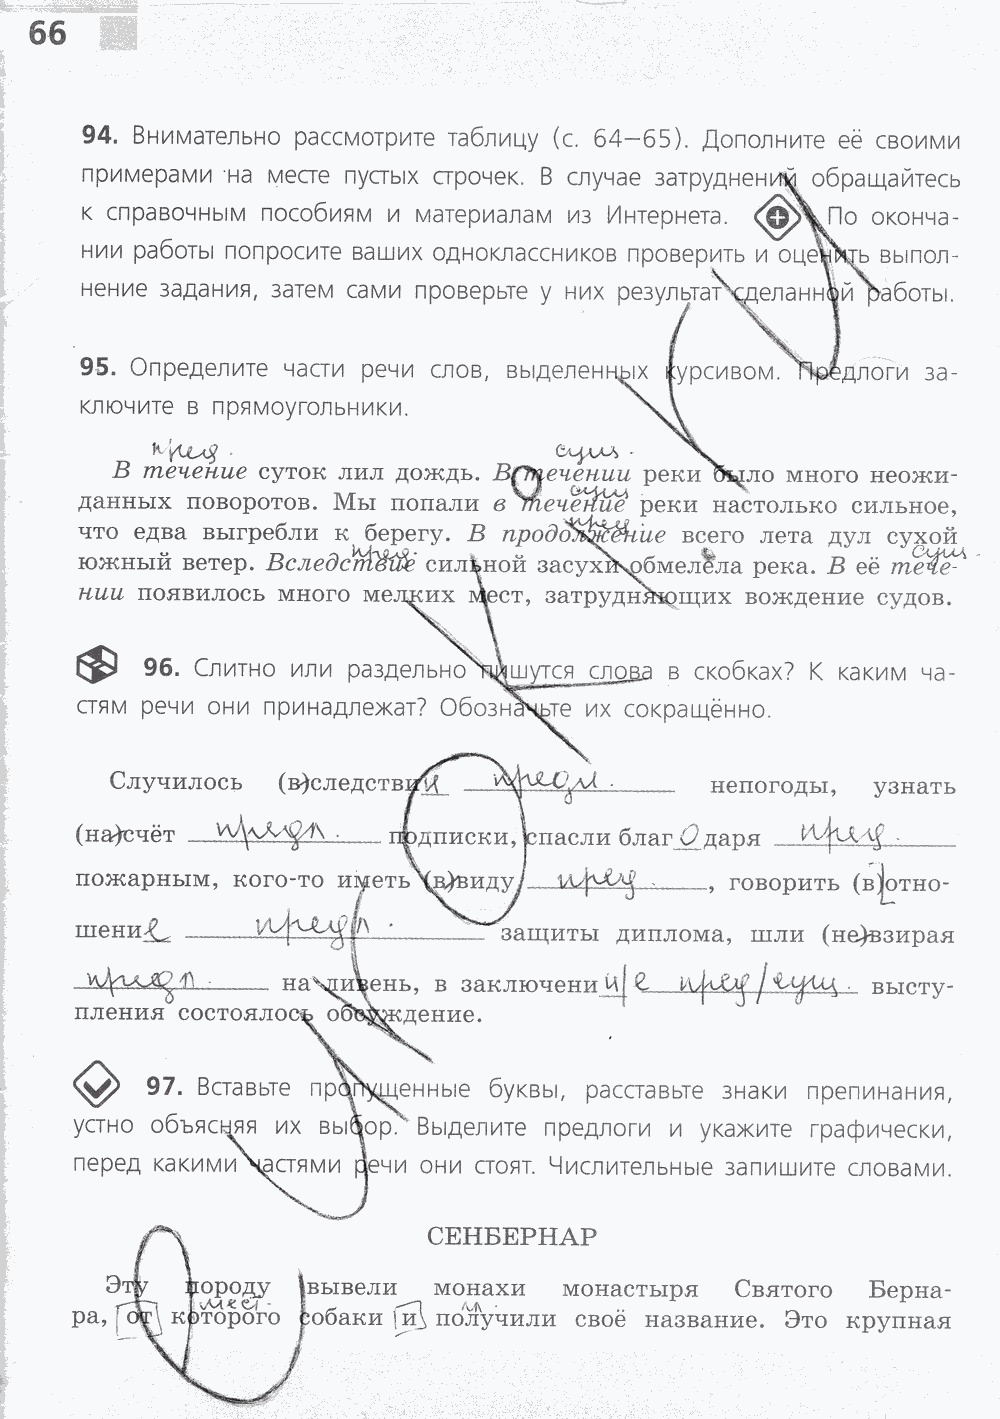 66
94. Внимательно рассмотрите таблицу (с. 64—65). Дополните её своими
примерами на месте пустых строчек. В случае затруднений обращайтесь
к справочным пособиям и материалам из Интернета. По оконча-
нии работы попросите ваших одноклассников проверить и оценить выпол-
нение задания, затем сами проверьте у них результат сделанной работы.
95. Определите части речи слов, выделенных курсивом. Предлоги за-
ключите в прямоугольники.
пред. сущ.
В течение суток лил дождь. В течении реки было много неожи-
сущ.
данных поворотов. Мы попали в течение реки настолько сильное,
пред.
что едва выгребли к берегу. В продолжение всего лета дул сухой
пред. сущ.
южный ветер. Вследствие сильной засухи обмелела река. В её тече-
нии появилось много мелких мест, затрудняющих вождение судов.
96. Слитно или раздельно пишутся слова в скобках? К каким ча-
стям речи они принадлежат? Обозначьте их сокращённо.
Случилось (в)следствии предл. непогоды, узнать
(на)счёт предл. подписки, спасли благодаря пред.
пожарным, кого-то иметь (в)виду пред., говорить (в)отно-
шение предл. защиты диплома, шли (не)взирая
предл. на ливень, в заключении/е пред/сущ. высту-
пления состоялось обсуждение.
97. Вставьте пропущенные буквы, расставьте знаки препинания,
устно объясняя их выбор. Выделите предлоги и укажите графически,
перед какими частями речи они стоят. Числительные запишите словами.
СЕНБЕРНАР
Эту породу вывели монахи монастыря Святого Берна-
мест. гл.
ра, от которого собаки и получили своё название. Это крупная